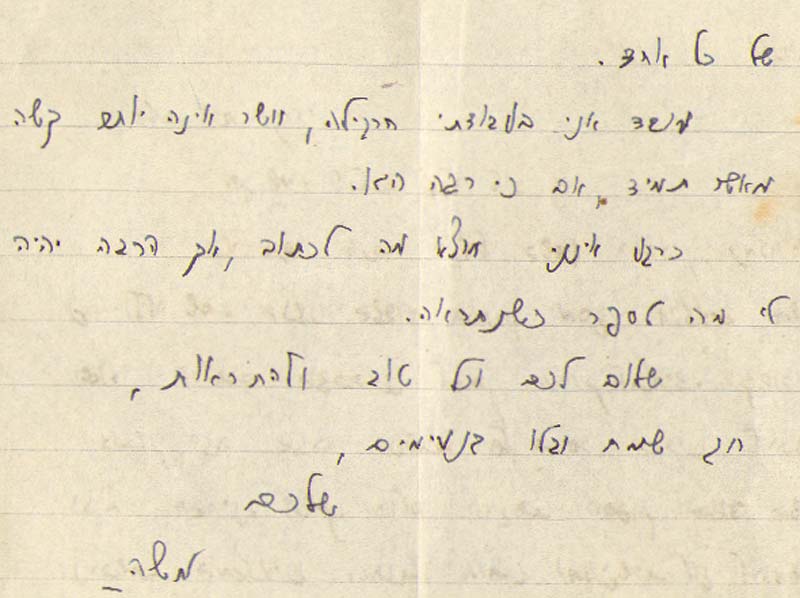 של כל אחד.
עסוד אני בעבודתי הרגילה, אשר אינה יותר קשה
מאשר תמיד, אם כי רבה היא.
כרגע אינני מוצא מה לכתוב, אך הרבה יהיה
לי מה לספר כשנתראה.
שלום לכם וכל טוב ולהתראות,
חג שמח ובלו בנעימים,
שלכם
משה